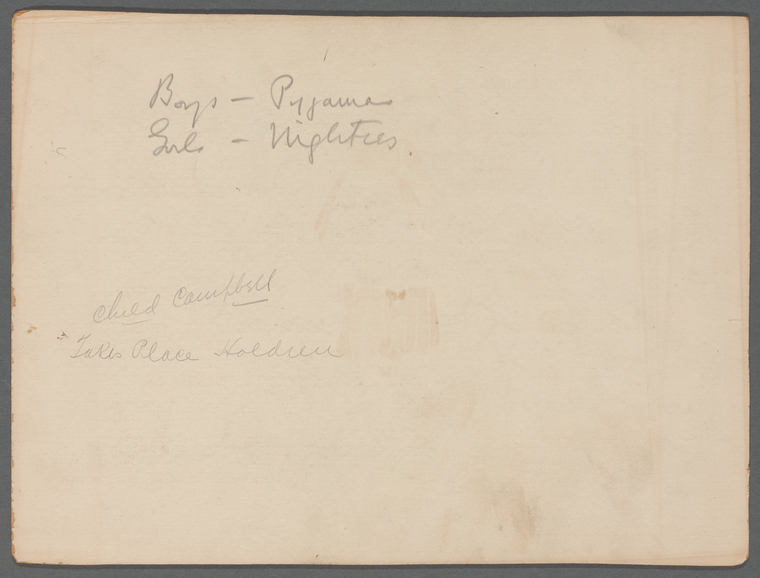 Boys - Pyjamas
Girls - Nighties.
Child Campbell
Takes Place Holdren